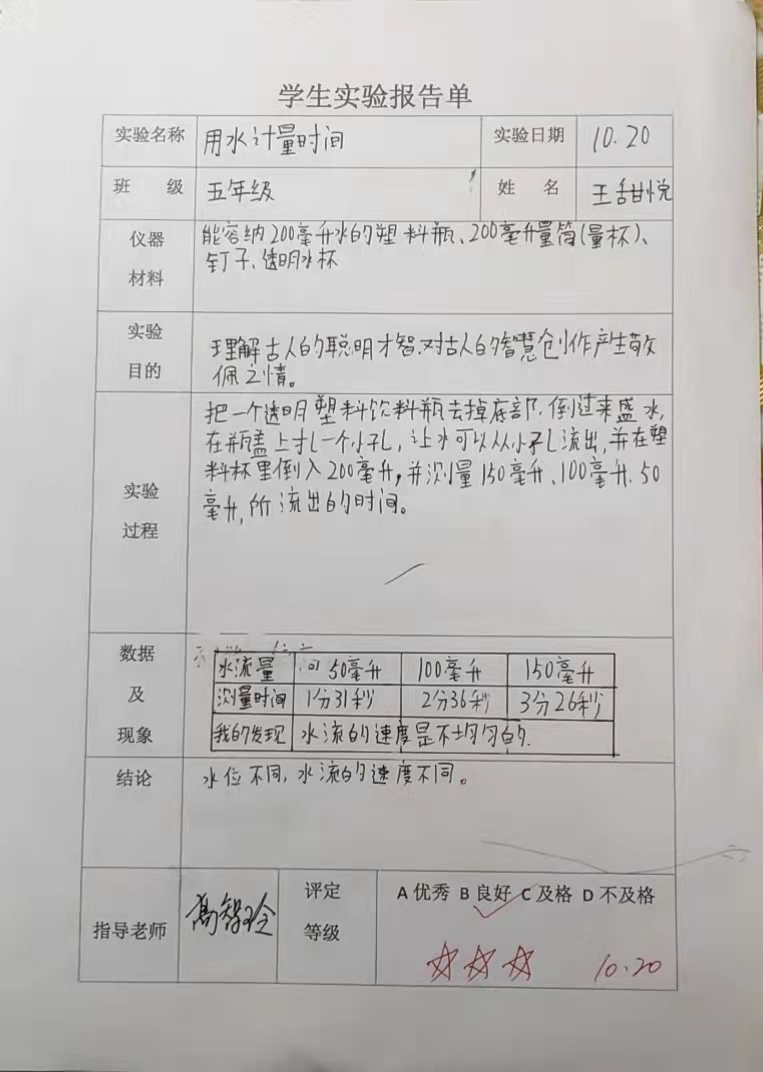 学生实验报告单
实验名称 用水计量时间 实验日期 10.20
班 级 五年级 姓 名 王甜悦
仪器材料 能容纳200毫升水的塑料瓶、200毫升量筒(量杯)、
钉子、透明水杯
实验目的 理解古人的聪明才智.对古人的智慧创作产生敬
佩之情。
把一个透明塑料饮料瓶去掉底部.倒过来盛水,
在瓶盖上扎一个小孔,让水可以从小孔流出,并在塑
实验过程 料杯里倒入200毫升,并测量150毫升、100毫升.50
毫升,所流出的时间。
数据及现象
水流量 50毫升 100毫升 150毫升
测量时间 1分31秒 2分36秒 3分26秒
我的发现 水流的速度是不均匀的.
结论 水位不同,水流的速度不同。
指导老师 高智玲 评定等级 A 优秀 B 良好 C 及格 D 不及格
10.20